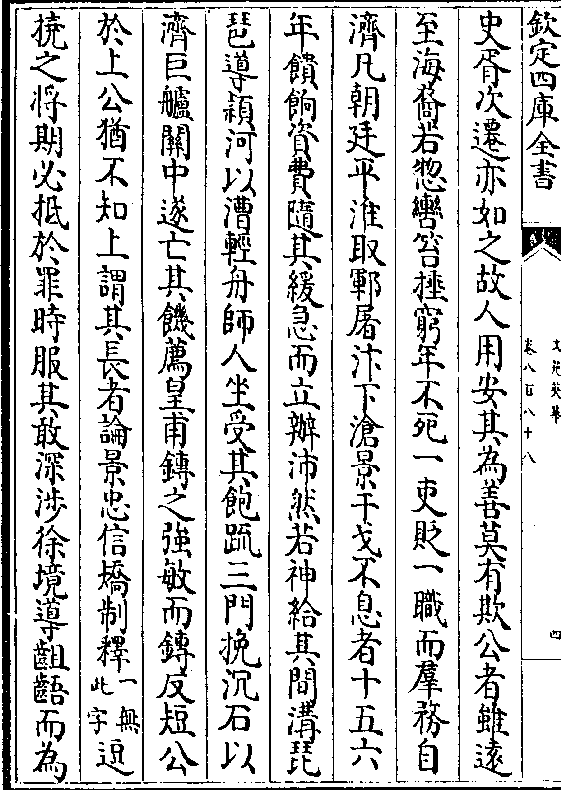 欽定四庫全書
文苑英華
卷八百八十八
四
史胥次遷亦如之故人用安其為善莫有欺公者雖逺
至海裔若惣轡笞捶窮年不死一吏貶一職而羣務自
濟凡朝廷平淮取鄆屠汴下滄景干戈不息者十五六
年饋餉資費隨其緩急而立辦沛然若神給其間溝琵
琶導潁河以漕輕舟師人坐受其飽䟽三門挽沉石以
濟巨艫關中遂亡其饑薦皇甫鏄之強敏而鏄反短公
於上公猶不知上謂其長者論景忠信矯制釋一無此字逗
撓之將期必抵於罪時服其敢深涉徐境導齟齬而為